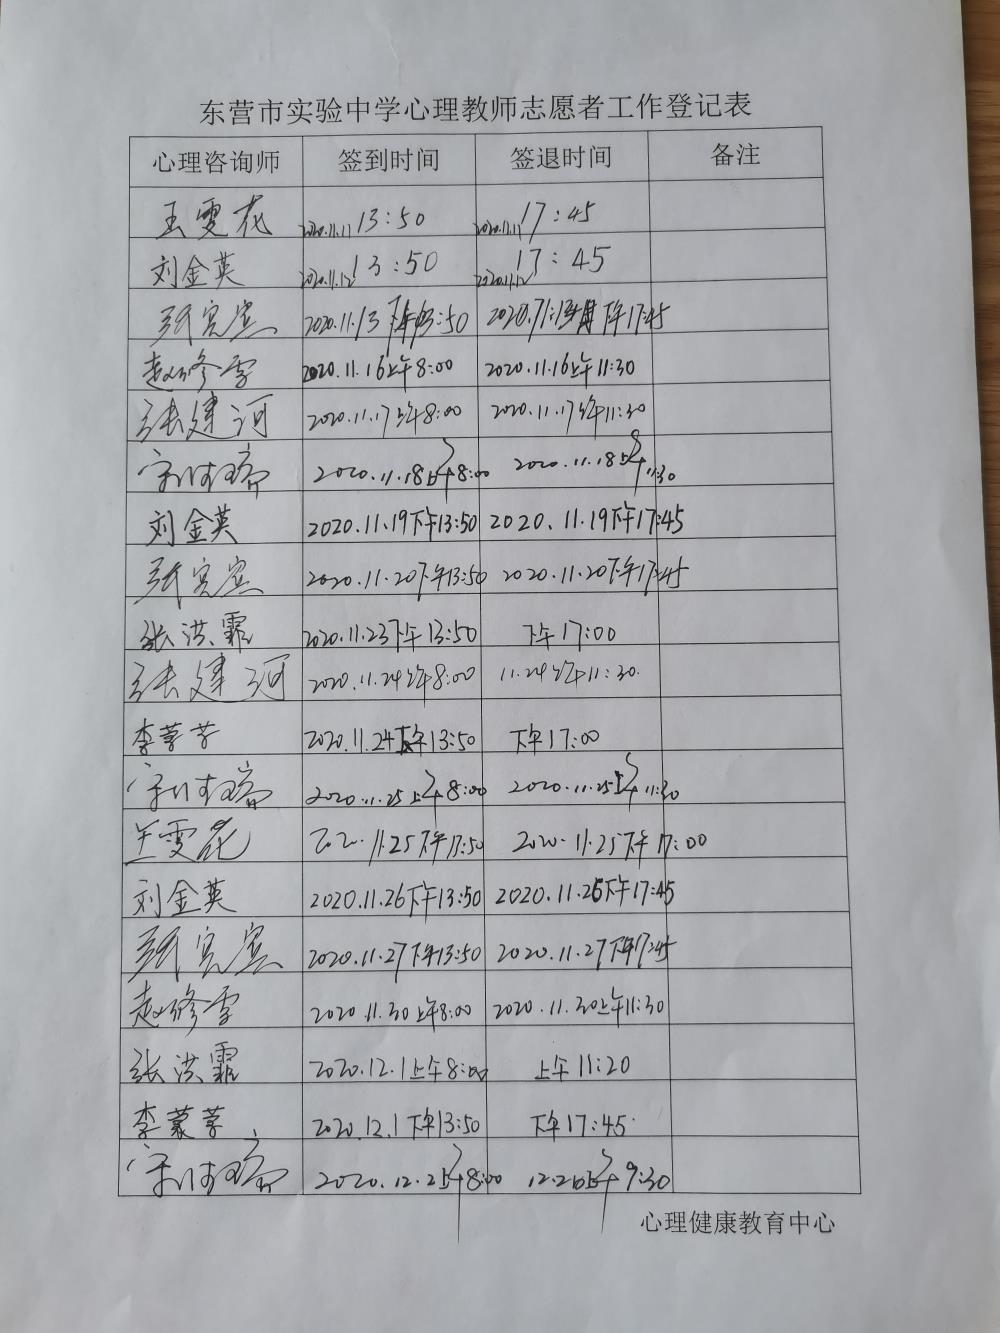 东营市实验中学心理教师志愿者工作登记表
心理咨询师 签到时间 签退时间 备注
王雯花 2020.11.11 13:50 2020.11.11 17:45
刘金英 2020.11.12 13:50 2020.11.12 17:45
张宾宾 2020.11.13 下午13:50 2020.11.13 下午17:45
赵修雪 2020.11.16上午8:00 2020.11.16上午11:30
张建河 2020.11.17上午8:00 2020.11.17上午11:30
2020.11.18上午8:00 2020.11.18上午11:30
刘金英 2020.11.19下午13:50 2020.11.19下午17:45
张宾宾 2020.11.20下午13:50 2020.11.20下午17:45
张洪霏 2020.11.23下午13:50 下午17:00
张建河 2020.11.24上午8:00 11.24上午11:30
李蒙 2020.11.24下午13:50 下午17:00
2020.11.25上午8:00 2020.11.25上午11:30
王雯花 2020.11.25下午 2020.11.25下午17:00
刘金英 2020.11.26下午13:50 2020.11.26下午17:45
张宾宾 2020.11.27下午13:50 2020.11.27下午17:45
赵修雪 2020.11.30上午8:00 2020.11.30上午11:30
张洪霏 2020.12.1上午8:00 上午11:20
李蒙 2020.12.1下午13:50 下午17:45
2020.12.2上午8:00 12.2上午9:30
心理健康教育中心